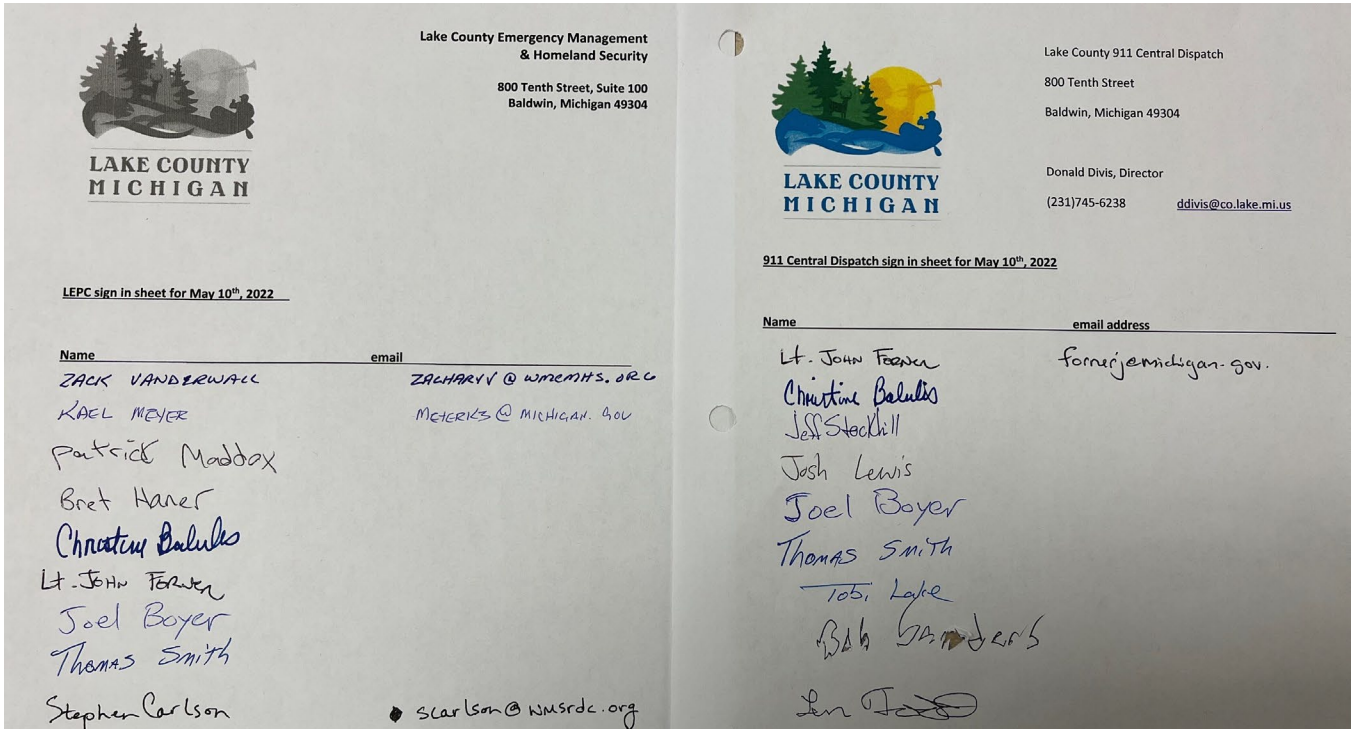 Lake County Emergency Management
& Homeland Security
800 Tenth Street, Suite 100
Baldwin, Michigan 49304
LAKE COUNTY
MICHIGAN
LEPC sign in sheet for May 10th, 2022
Name email
ZACK VANDERWALL ZACHARYV @ WMEMHS.ORG
KAEL MEYER MEYERK3@MICHIGAN.GOV
Patrick Maddox
Bret Haner
Christine Balulis
Lt. JOHN FORNER
Joel Boyer
THOMAS SMITH
Stephen Carlson scarlson@wmsrdc.org
Lake County 911 Central Dispatch
800 Tenth Street
Baldwin, Michigan 49304
Donald Divis, Director
(231)745-6238 ddivis@co.lake.mi.us
LAKE COUNTY
MICHIGAN
911 Central Dispatch sign in sheet for May 10th, 2022
Name email address
Lt. JOHN FORNER fornerj@michigan.gov.
Christine Balulis
Jeff Stockhill
Josh Lewis
Joel Boyer
THOMAS SMITH
Tobi Lake
Bob Sanders